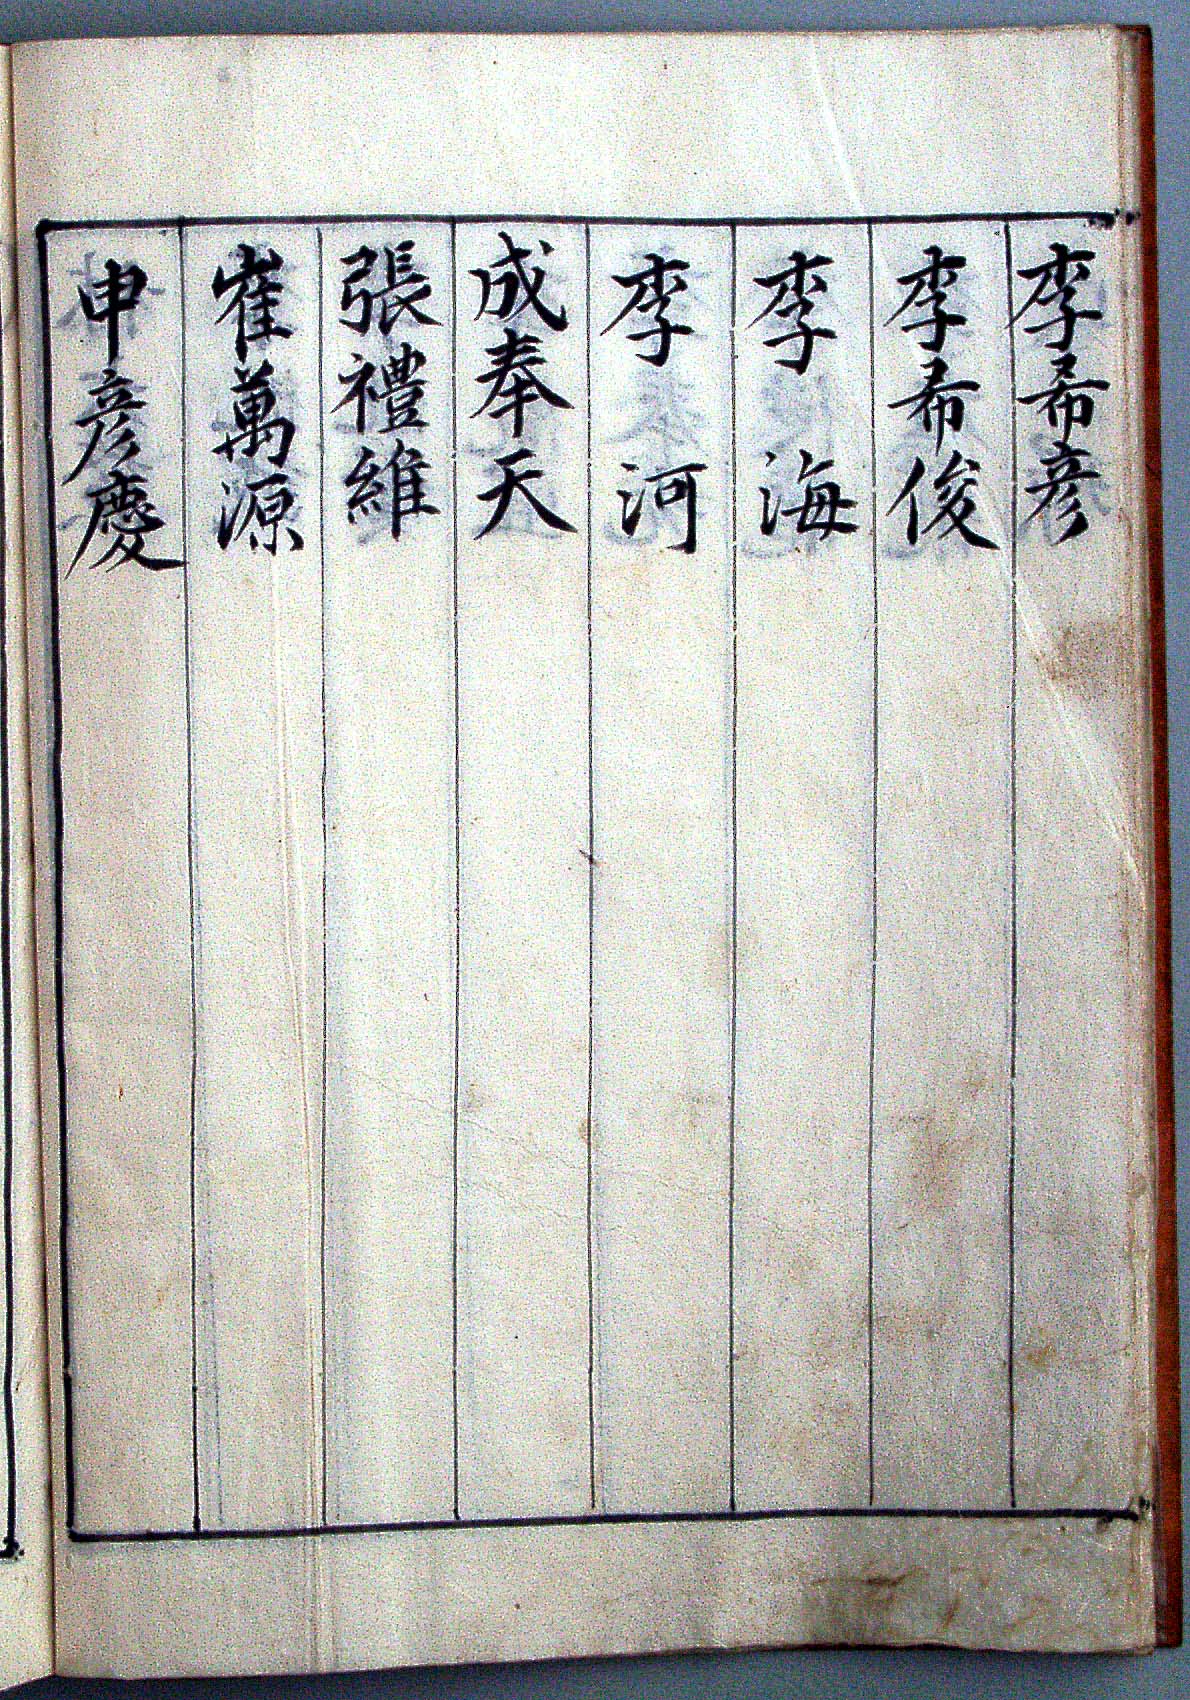 李希彦
李希俊
李海
李河
成奉天
張禮維
崔萬源
申彦慶